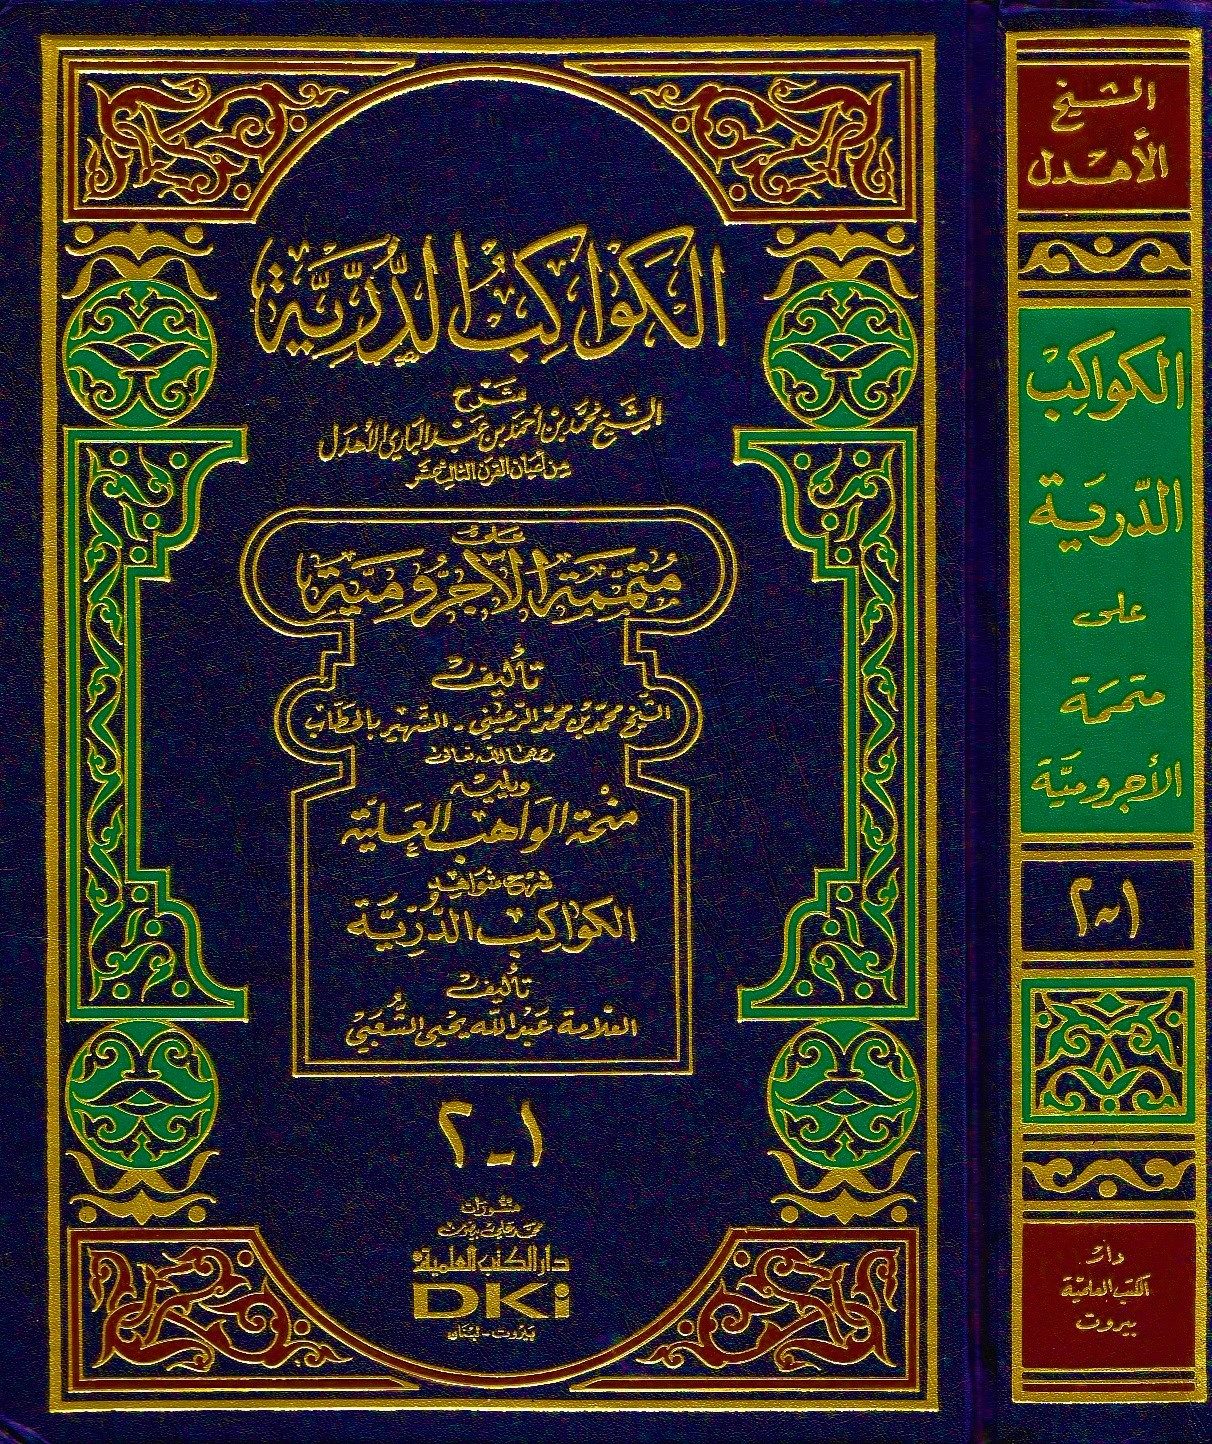 الكَواكِبُ الدُّرِّيَّة
شَرْح
الشَّيْخ مُحَمَّد بن أَحمَد بن عَبْد البَارِي الأهْدَل
مِن أعيَان القَرن الثالث عَشَر
عَلى
مُتَمِّمَة الآجُرُّومِيَّة
تَأليفْ
الشّيخ محمّد بن محمّد الرعيني - الشهير بالحطّاب
رحمهما الله تعالى
ويليه
منْحة الواهب العَليّة
شرح شواهد
الكواكب الدّرّيَّة
تَأليفْ
العلّامة عَبْد الله يحيى الشّعَبي
١-٢
منشورات
محمد علي بيضون
دار الكتب العلمية
DKi
بَيْرُوت - لبْنَان
الشيخ
الأَهْدل
الكواكبْ
الدّريَة
على
متممَة
الأجروميَّة
١-٢
دَارْ
الكتب العلميّة
بيروت